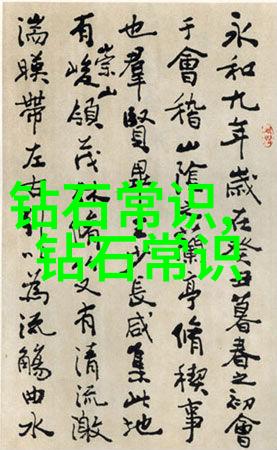 永和九年歲在癸丑暮春之初會
于會稽山陰之蘭亭脩稧事
也羣賢畢少長咸集此地
有崇山峻領茂林脩又有清流激
湍暎帶左右以為流觴曲水
钻石常识,
钻石常识